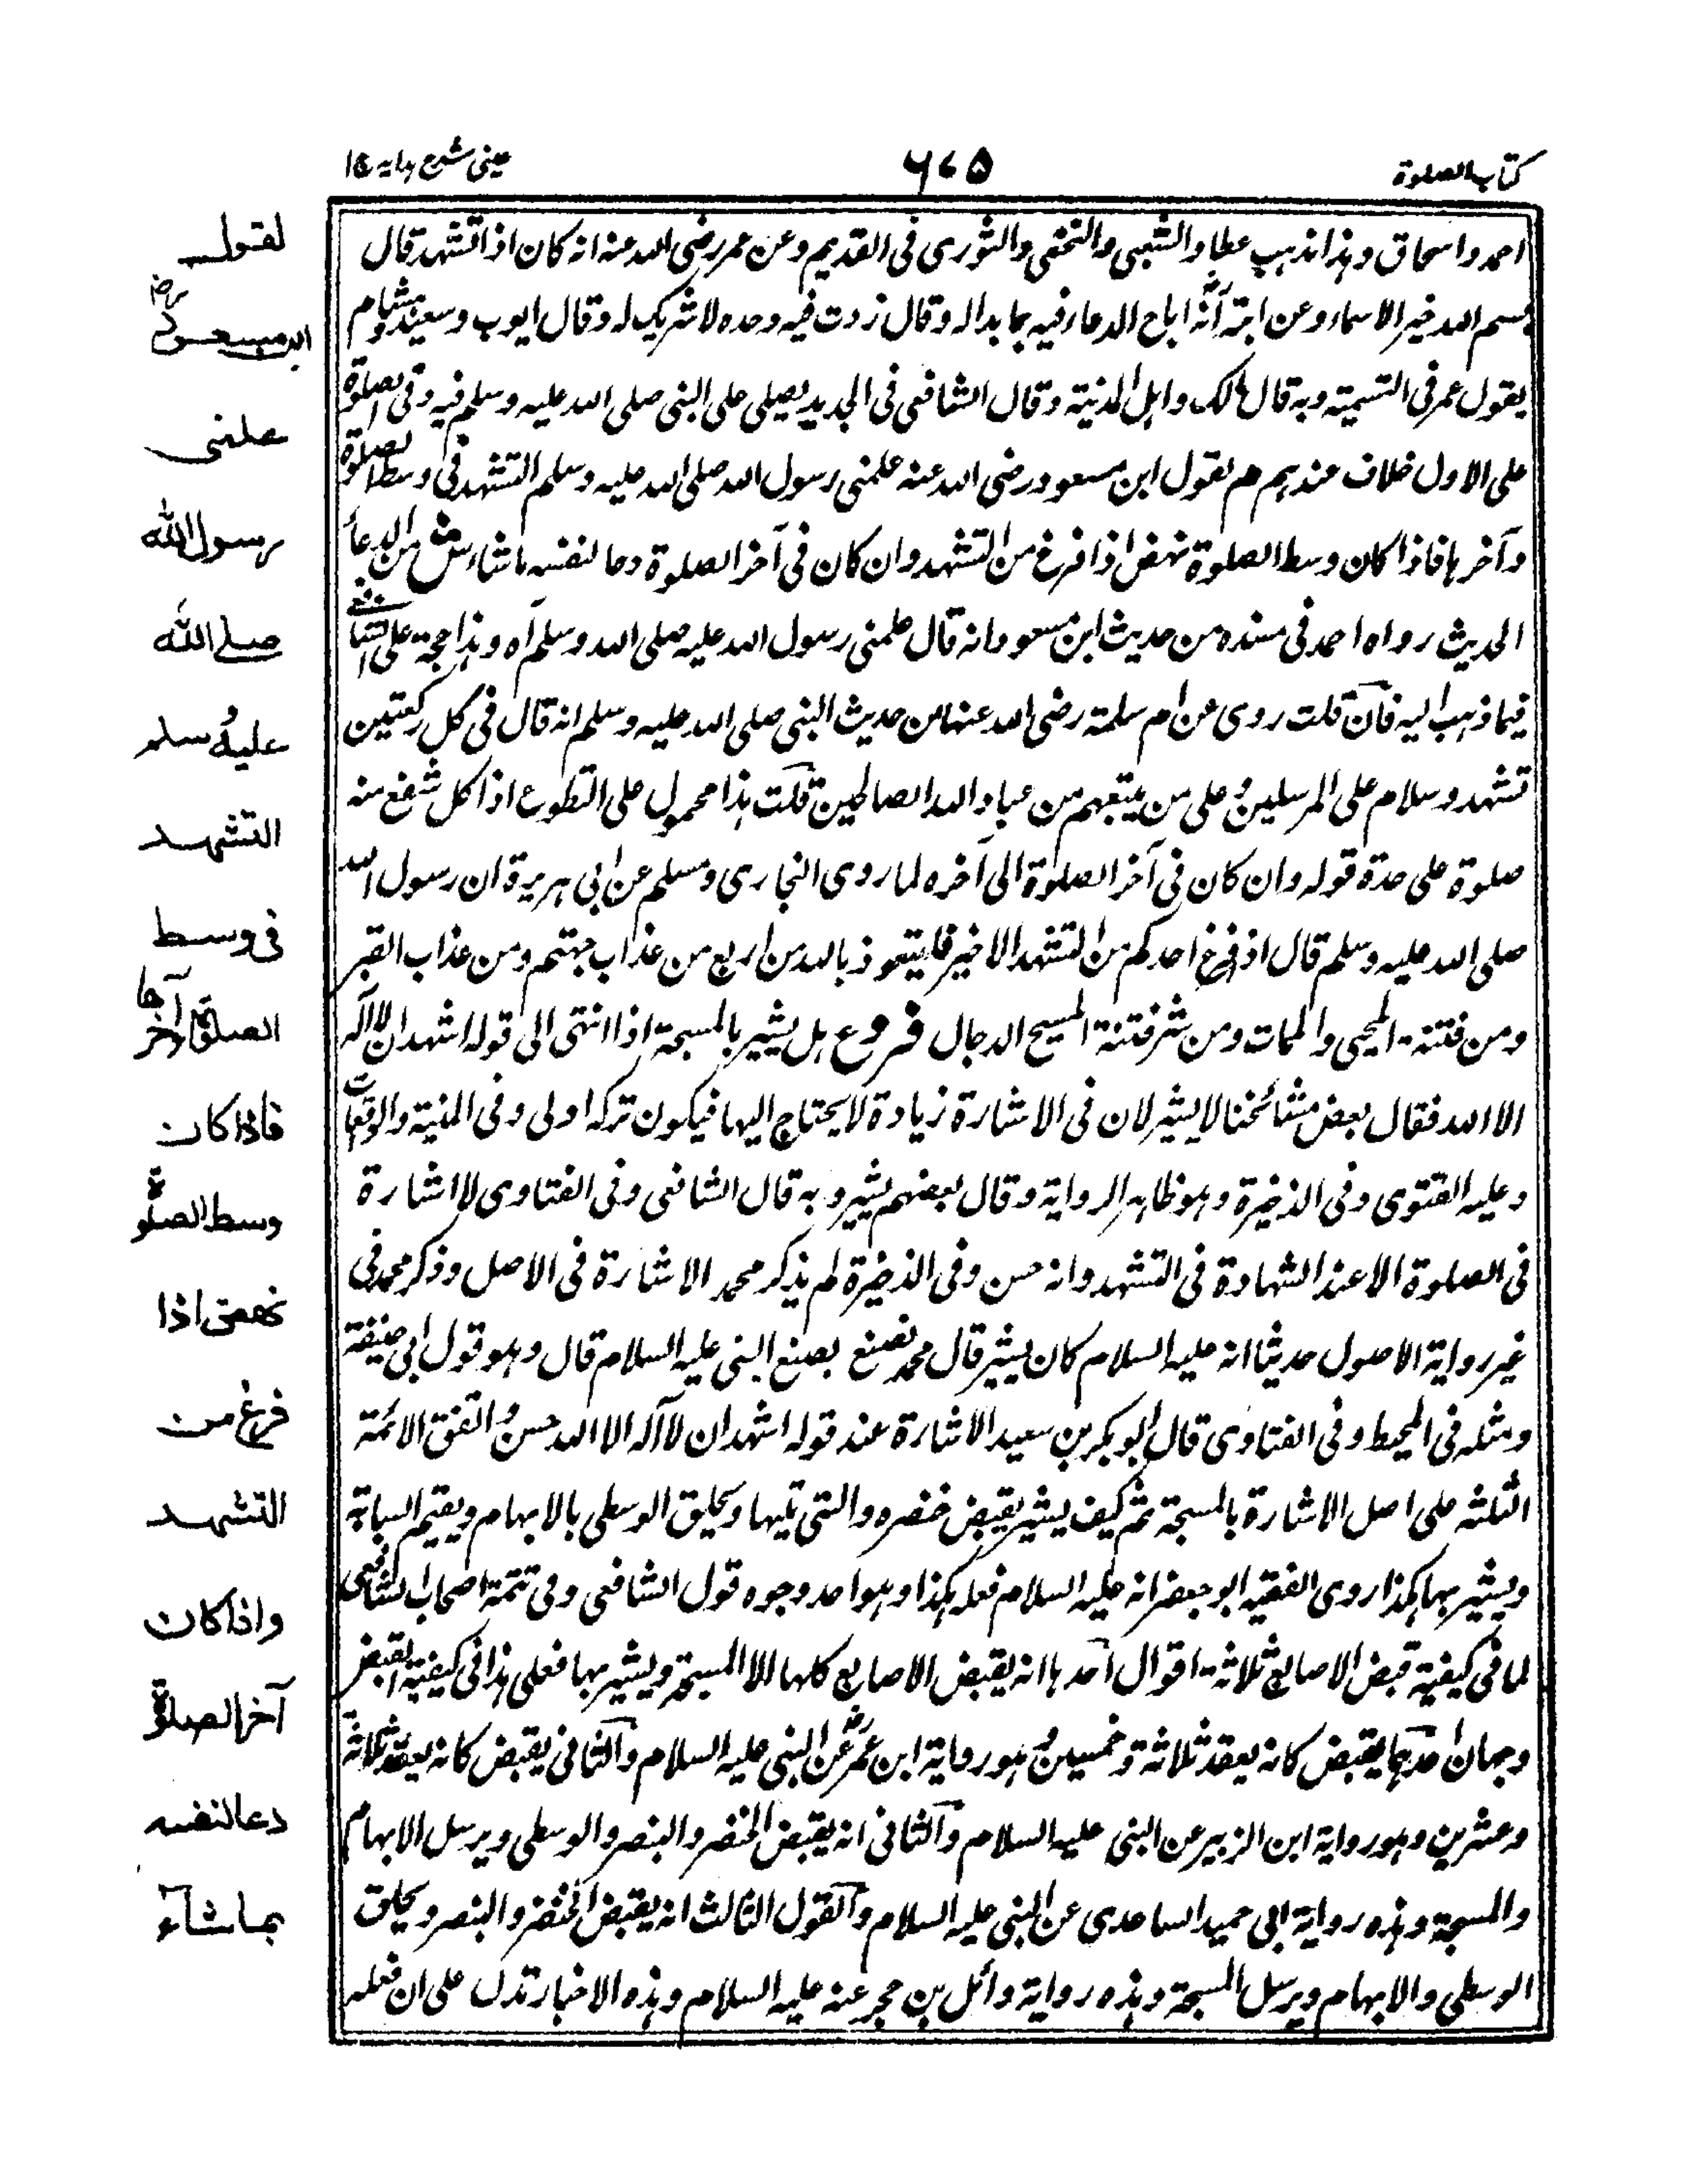 كتاب الصلوة
٦٧٥
عينى شرح هدايه ج١
احمد واسحاق وهذا مذهب عطاء والشعبي والنخعي والثوري في القديم وعن عمر رضى الله عنه انه كان اذا تشهد قال
بسم الله خير الاسماء وعن ابنه انه اباح الدعاء فيه بما بدا له وقال زدت فيه وحده لا شريك له وقال ايوب وسعيد وهشام
يقول عمر في التسمية وبه قال مالك واهل المدينة وقال الشافعي في الجديد يصلي على النبي صلى الله عليه وسلم فيه وفي الصلوة
على الاول خلاف عندهم هم لقول ابن مسعود رضى الله عنه علمني رسول الله صلى الله عليه وسلم التشهد في وسط الصلوة
وآخرها فاذا كان وسط الصلوة نهض اذا فرغ من التشهد وان كان في آخر الصلوة دعا لنفسه ما شاء ش من الدعاء
الحديث رواه احمد في مسنده من حديث ابن مسعود انه قال علمني رسول الله عليه صلى الله وسلم آه وهذا حجة على الشافعي
فيما ذهب اليه فان قلت روى عن ام سلمة رضى الله عنها من حديث النبي صلى الله عليه وسلم انه قال في كل ركعتين
تشهد وسلام على المرسلين وعلى من يتبعهم من عباد الله الصالحين قلت هذا محمول على التطوع اذا كل شفع منه
صلوة على حدة قوله وان كان في آخر الصلوة الى آخره لما روى البخاري ومسلم عن ابي هريرة ان رسول الله
صلى الله عليه وسلم قال اذا فرغ احدكم من التشهد الاخير فليتعوذ بالله من اربع من عذاب جهنم ومن عذاب القبر
ومن فتنة المحيى والممات ومن شر فتنة المسيح الدجال فروع هل يشير بالمسبحة اذا انتهى الى قوله اشهد ان لا آله
الا الله فقال بعض مشائخنا لا يشير لان في الاشارة زيادة لا يحتاج اليها فيكون تركه اولى وفي المنية والواقعات
وعليه الفتوى وفي الذخيرة وهو ظاهر الرواية وقال بعضهم يشير وبه قال الشافعي وفي الفتاوى لا اشارة
في الصلوة الا عند الشهادة في التشهد وانه حسن وفي الذخيرة لم يذكر محمد الاشارة في الاصل وذكر محمد في
غير رواية الاصول حديثا انه عليه السلام كان يشير قال محمد نصنع بصنع النبي عليه السلام قال وهو قول ابي حنيفة
ومثله في المحيط وفي الفتاوى قال ابو بكر بن سعيد الاشارة عند قوله اشهد ان لا آله الا الله حسن واتفق الائمة
الثلثه على اصل الاشارة بالمسبحة ثم كيف يشير يقبض خنصره والتي تليها ويحلق الوسطى بالابهام ويقيم السبابة
ويشير بها هكذا روى الفقيه ابو جعفر انه عليه السلام فعله هكذا وهو احد وجوه قول الشافعي وفي تتمة اصحاب الشافعي
لما في كيفية قبض الاصابع ثلاثة اقوال احدها انه يقبض الاصابع كلها الا المسبحة ويشير بها فعلى هذا في كيفية القبض
وجهان احدهما يقبض كانه يعقد ثلاثة وخمسين وهو رواية ابن عمر عن النبي عليه السلام والثاني يقبض كانه يعقد ثلاثة
وعشرين وهو رواية ابن الزبير عن النبي عليه السلام والثاني انه يقبض الخنصر والبنصر والوسطى ويرسل الابهام
والمسبحة وهذه رواية ابي حميد الساعدي عن النبي عليه السلام والقول الثالث انه يقبض الخنصر والبنصر ويحلق
الوسطى والابهام ويرسل المسبحة وهذه رواية وائل بن حجر عنه عليه السلام وهذه الاخبار تدل على ان فعله
لقول
ابن مسعود رض
علمنى
رسول الله
صلے الله
عليه وسلم
التشهد
فى وسط
الصلوة وآخرها
فاذا كان
وسط الصلوة
نهض اذا
فرغ من
التشهد
واذا كان
آخر الصلوة
دعا لنفسه
بما شاء